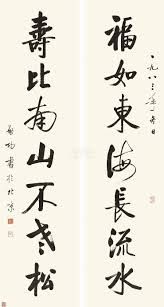 一九八三年
福如東海長流水
壽比南山不老松
書於北京